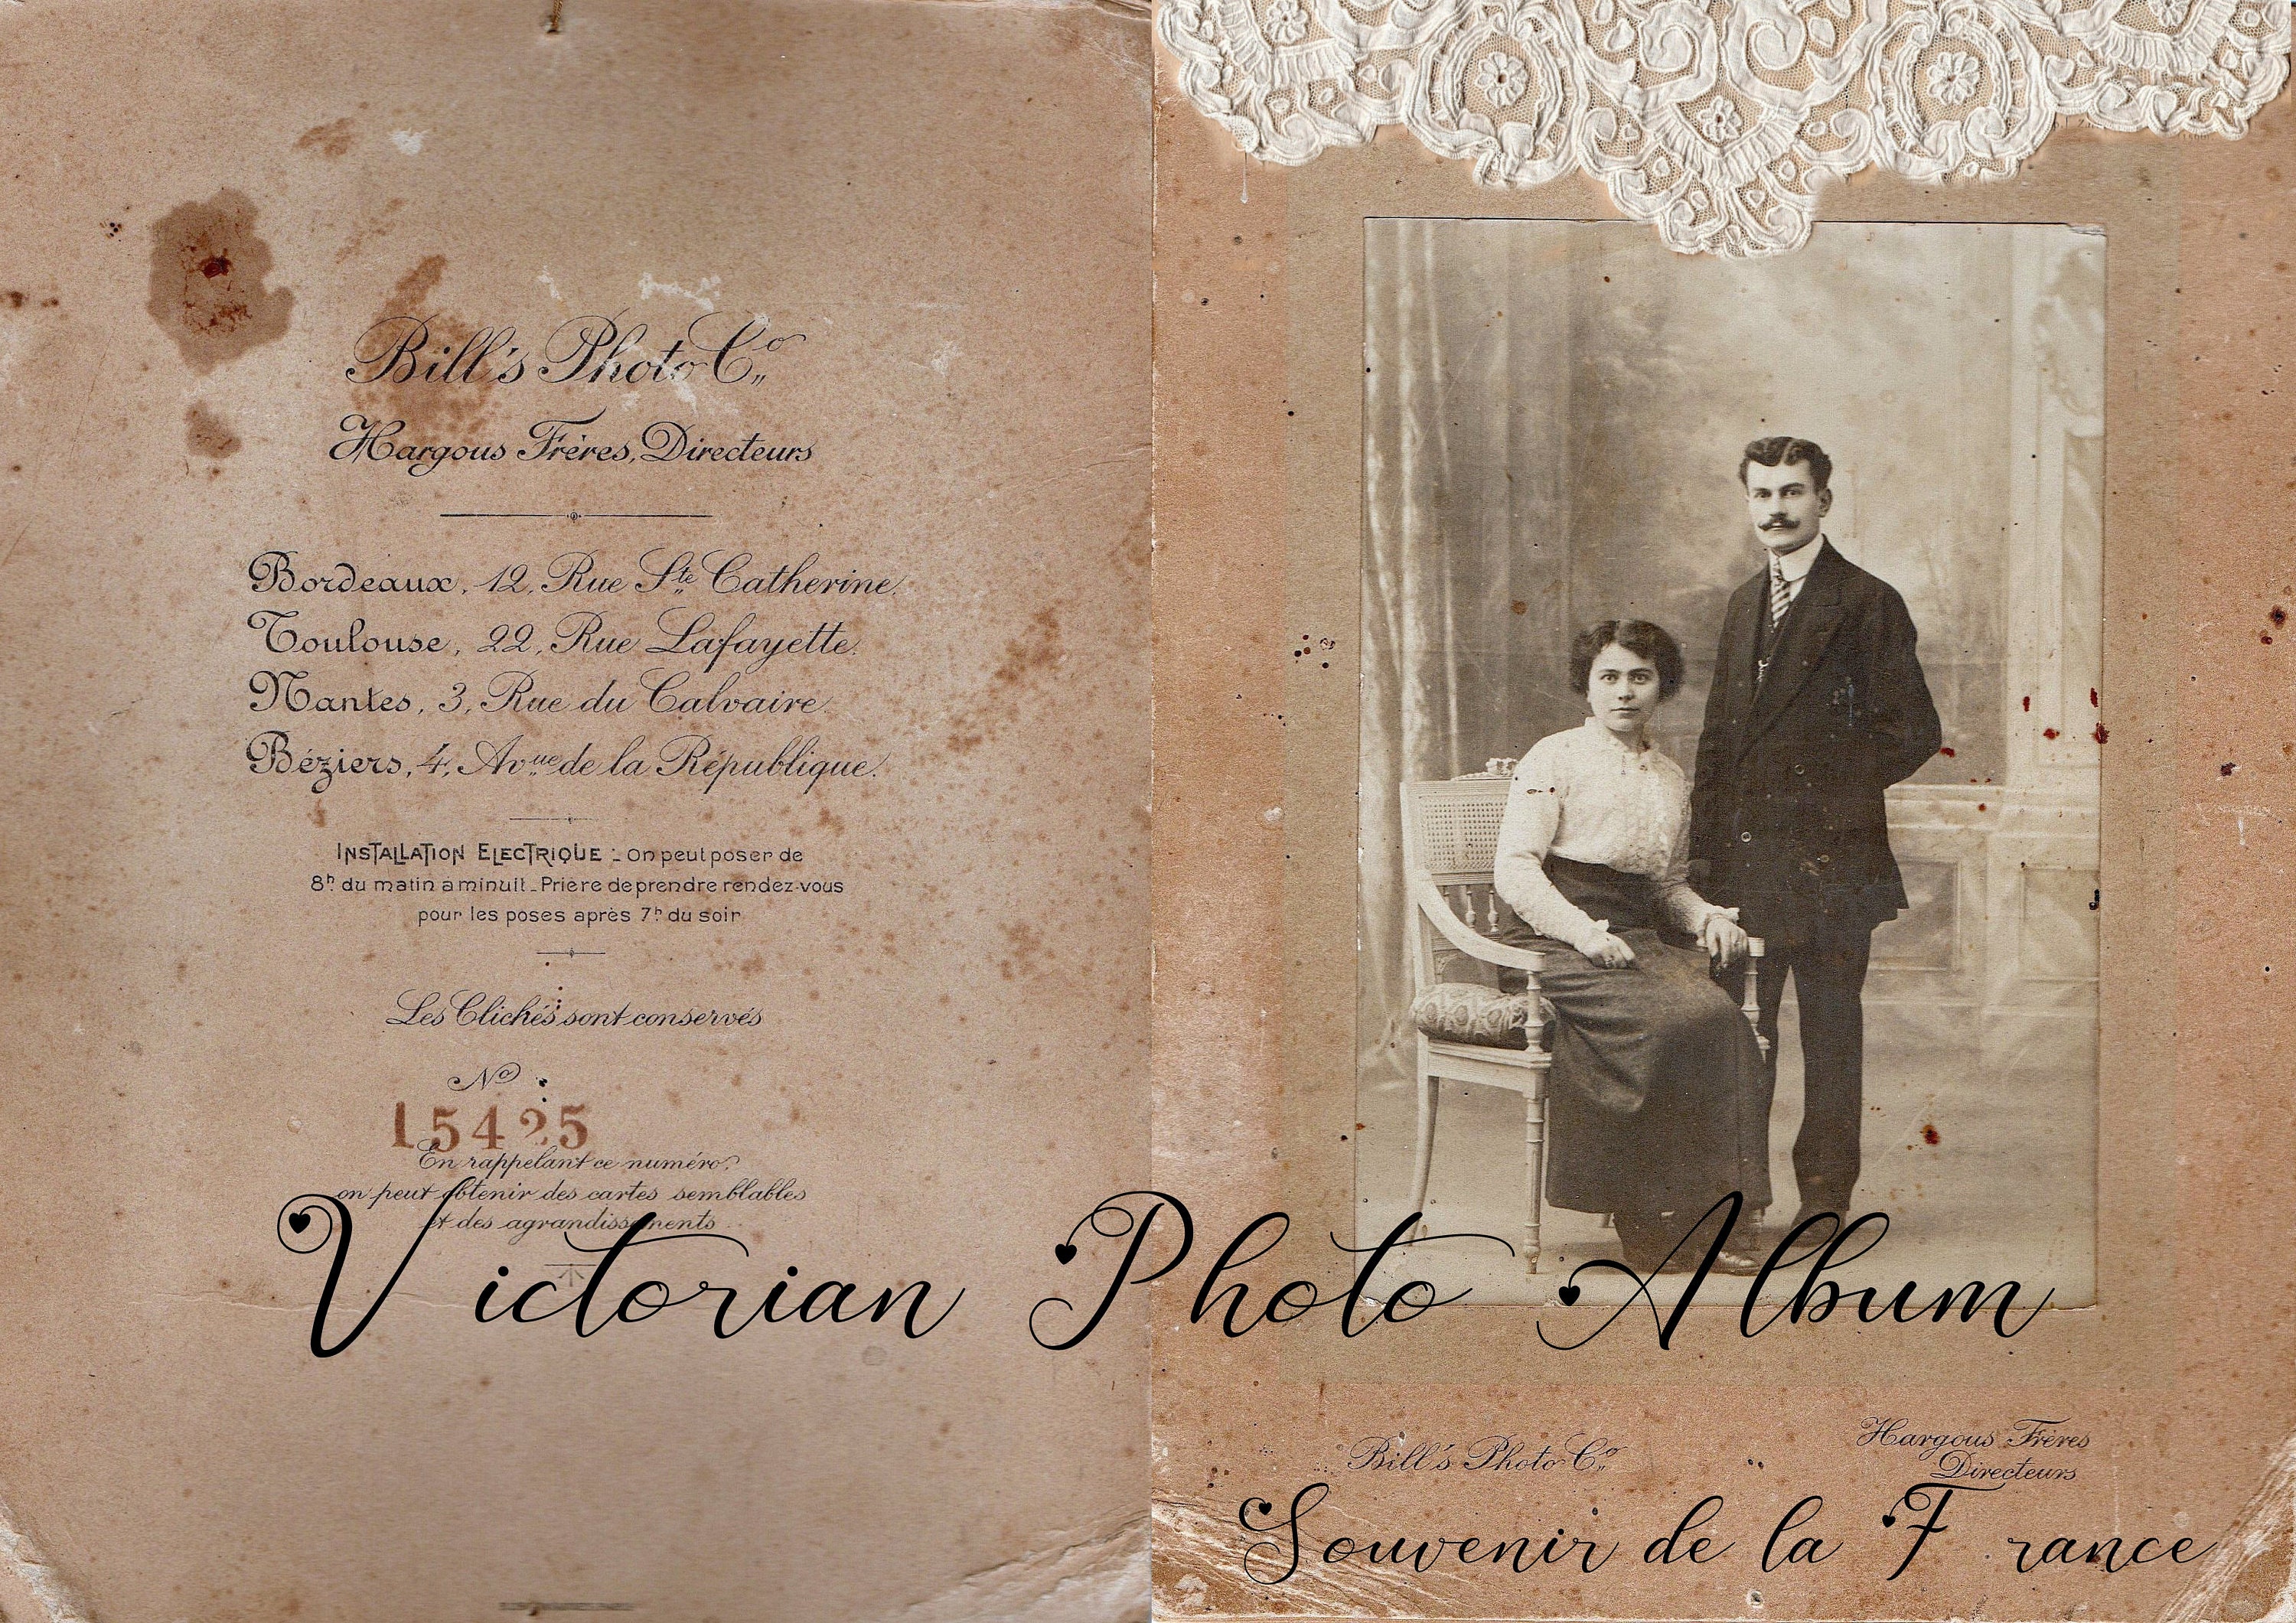 Bill's Photo Cº
Hargous Frères, Directeurs
Bordeaux, 12, Rue Ste Catherine.
Toulouse, 22, Rue Lafayette.
Nantes, 3, Rue du Calvaire.
Béziers, 4, Avue de la République.
INSTALLATION ELECTRIQUE - On peut poser de
8h du matin a minuit - Prière de prendre rendez-vous
pour les poses après 7h du soir
Les Clichés sont conservés
Nº
15425
En rappelant ce numéro,
on peut obtenir des cartes semblables
et des agrandissements
Victorian Photo Album
Bill's Photo Cº
Hargous Frères
Directeurs
Souvenir de la France